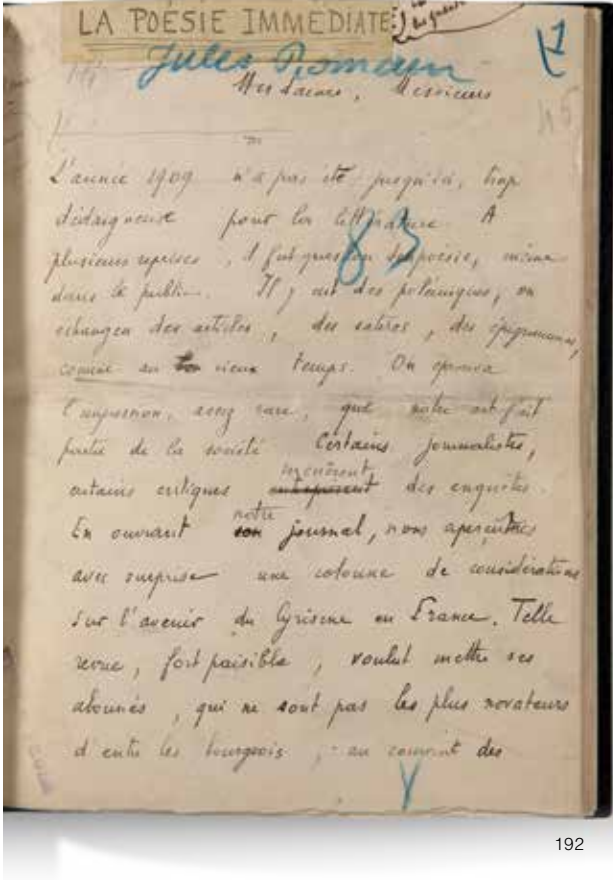 LA POÉSIE IMMÉDIATE
Jules Romain
Mesdames, Messieurs
L'année 1909 n'a pas été jusqu'ici, trop
dédaigneuse pour la littérature. A
plusieurs reprises, il fut question de poésie, même
dans le public. Il y eut des polémiques, on
échangea des articles, des satires, des épigrammes,
comme au bon vieux temps. On éprouva
l'impression, assez rare, que notre art fait
partie de la société. Certains journalistes,
certains critiques menèrent des enquêtes.
En ouvrant notre journal, nous aperçûmes
avec surprise une colonne de considérations
sur l'avenir du lyrisme en France. Telle
revue, fort paisible, voulut mettre ses
abonnés, qui ne sont pas les plus novateurs
d'entre les bourgeois, au courant des
83
192